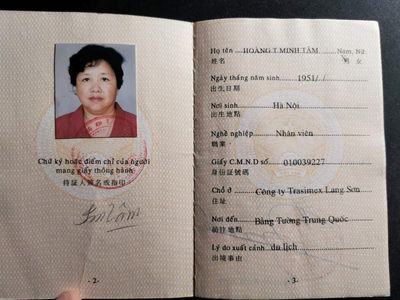 Chữ ký hoặc điểm chỉ của người
mang giấy thông hành.
持証人簽名或指印
- 2 -
Họ tên HOÀNG T MINH TÂM Nam, Nữ:
姓名 男 女
Ngày tháng năm sinh 1951/
出生日期
Nơi sinh Hà Nội
出生地點
Nghề nghiệp Nhân viên
職業
Giấy C.M.N.D số 010039227
身份証號碼
Chỗ ở Công ty Trasimex Lạng Sơn
住址
Nơi đến Bằng Tường Trung Quốc
前往地點
Lý do xuất cảnh du lịch
出境事由
- 3 -